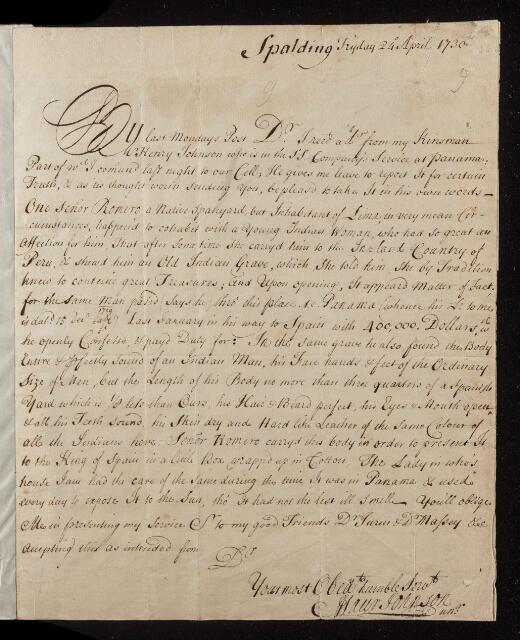 Spalding Fryday 24 April 1730
9
9
By last Mondays Post Dr. I recd a Lr from my Kinsman
Mr Henry Johnson who is in the S.S. Company's Service at Panama,
Part of wch I comand last night to our Cell, He gives me leave to report it for certain
Truth, & as its thought worth Sending You, be pleasd to take it in his own words —
One Señor Romero a Native Spanyard, but Inhabitant of Lima, in very mean Cir-
cumstances, happend to cohabit with a Young Indian Woman, who had so great an
Affection for him, That after Some time She carryd him to the Inland Country of
Peru, & shewd him an Old Indian Grave, which She told him She by Tradition
knew to contein great Treasures; and Upon opening, it appeard Matter of Fact,
for the Same Man passd Says he, thro' this place i.e. Panama (whence his Lr to me
is dated 15 Decr 1729) Last January in his way to Spain with 400,000 Dollars, wch
he openly Confessd, & payd Duty for: In the Same grave he also found the Body
Entire & pfectly Sound of an Indian Man, his Face hands & feet of the Ordinary
Size of Men, but the Length of his Body no more than three quarters of a Spanish
Yard which is less than Ours, his Hair & Beard perfect, his Eyes & Mouth open
& all his Teeth Sound, his Skin dry and Hard like Leather of the Same Colour of
all the Indians here. Señor Romero carryd this body in order to present it
to the King of Spain in a little Box wrapd up in Cotton. The Lady in who's
house I am had the care of the Same during the time it was in Panama & used
every day to expose It to the Sun, tho' it had not the lest ill Smell — You'll oblige
Me in presenting my Service Sr to my good Friends Dr Jurin & Dr Massey &c
accepting this as intended from Sr
Your most Obedt humble Servt
Maur Johnson
Junr